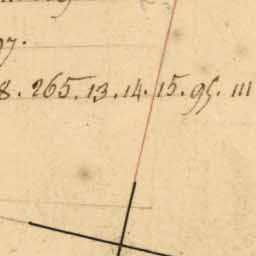 8. 265. 13. 14. 15. 95. 111